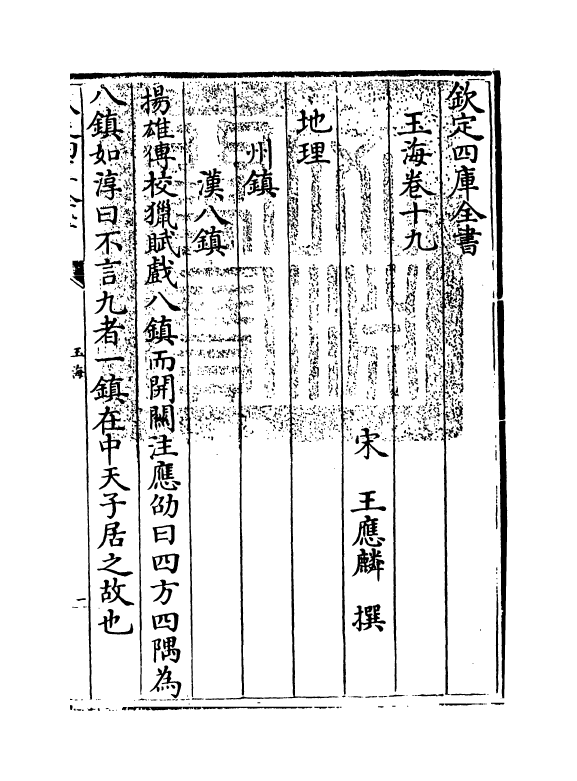 欽定四庫全書
玉海卷十九
宋　王應麟　撰
地理
州鎮
漢八鎮
揚雄傳校獵賦戲八鎮而開關注應劭曰四方四隅為
八鎮如淳曰不言九者一鎮在中天子居之故也
玉海